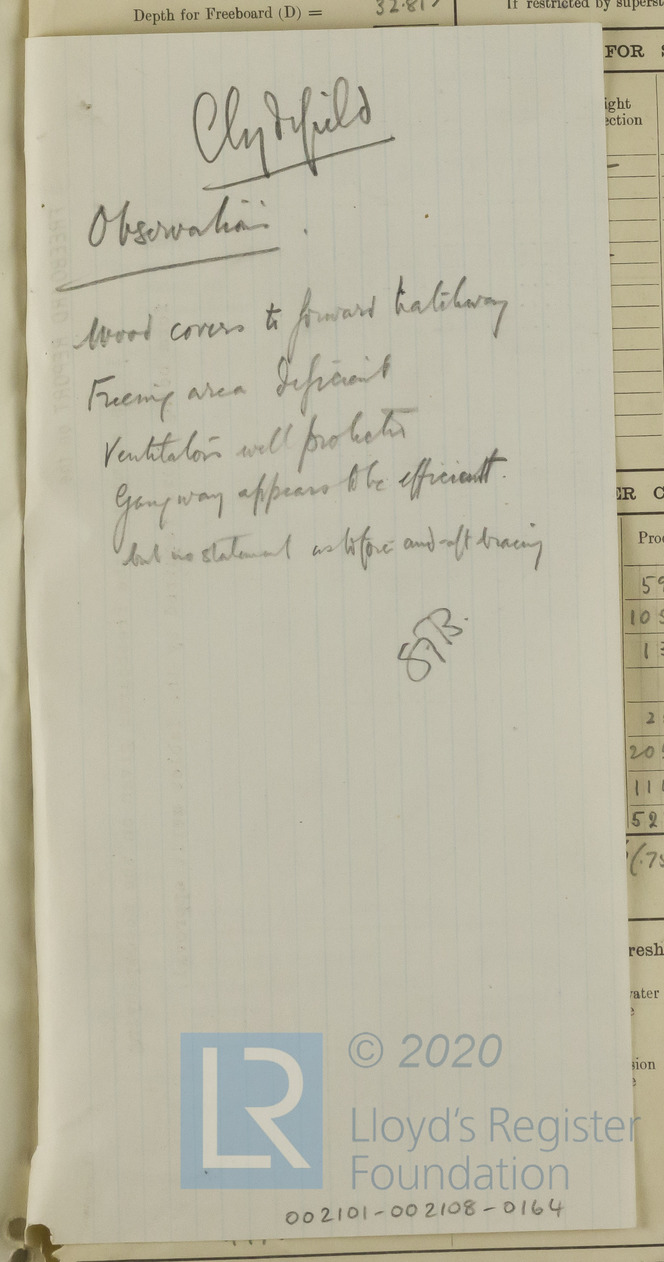 Depth for Freeboard (D) =
32.81
If restricted by superst
FOR
ight
ection
Clydefield
Observations.
Wood covers to forward hatchway
Freeing area deficient
Ventilators well protected
Gangway appears to be efficient.
but no statement as to fore and-aft bracing
ER C
Pro
59
105
13
2
20
11
52
resh
ater
sion
LR
© 2020
Lloyd's Register
Foundation
002101-002108-0164